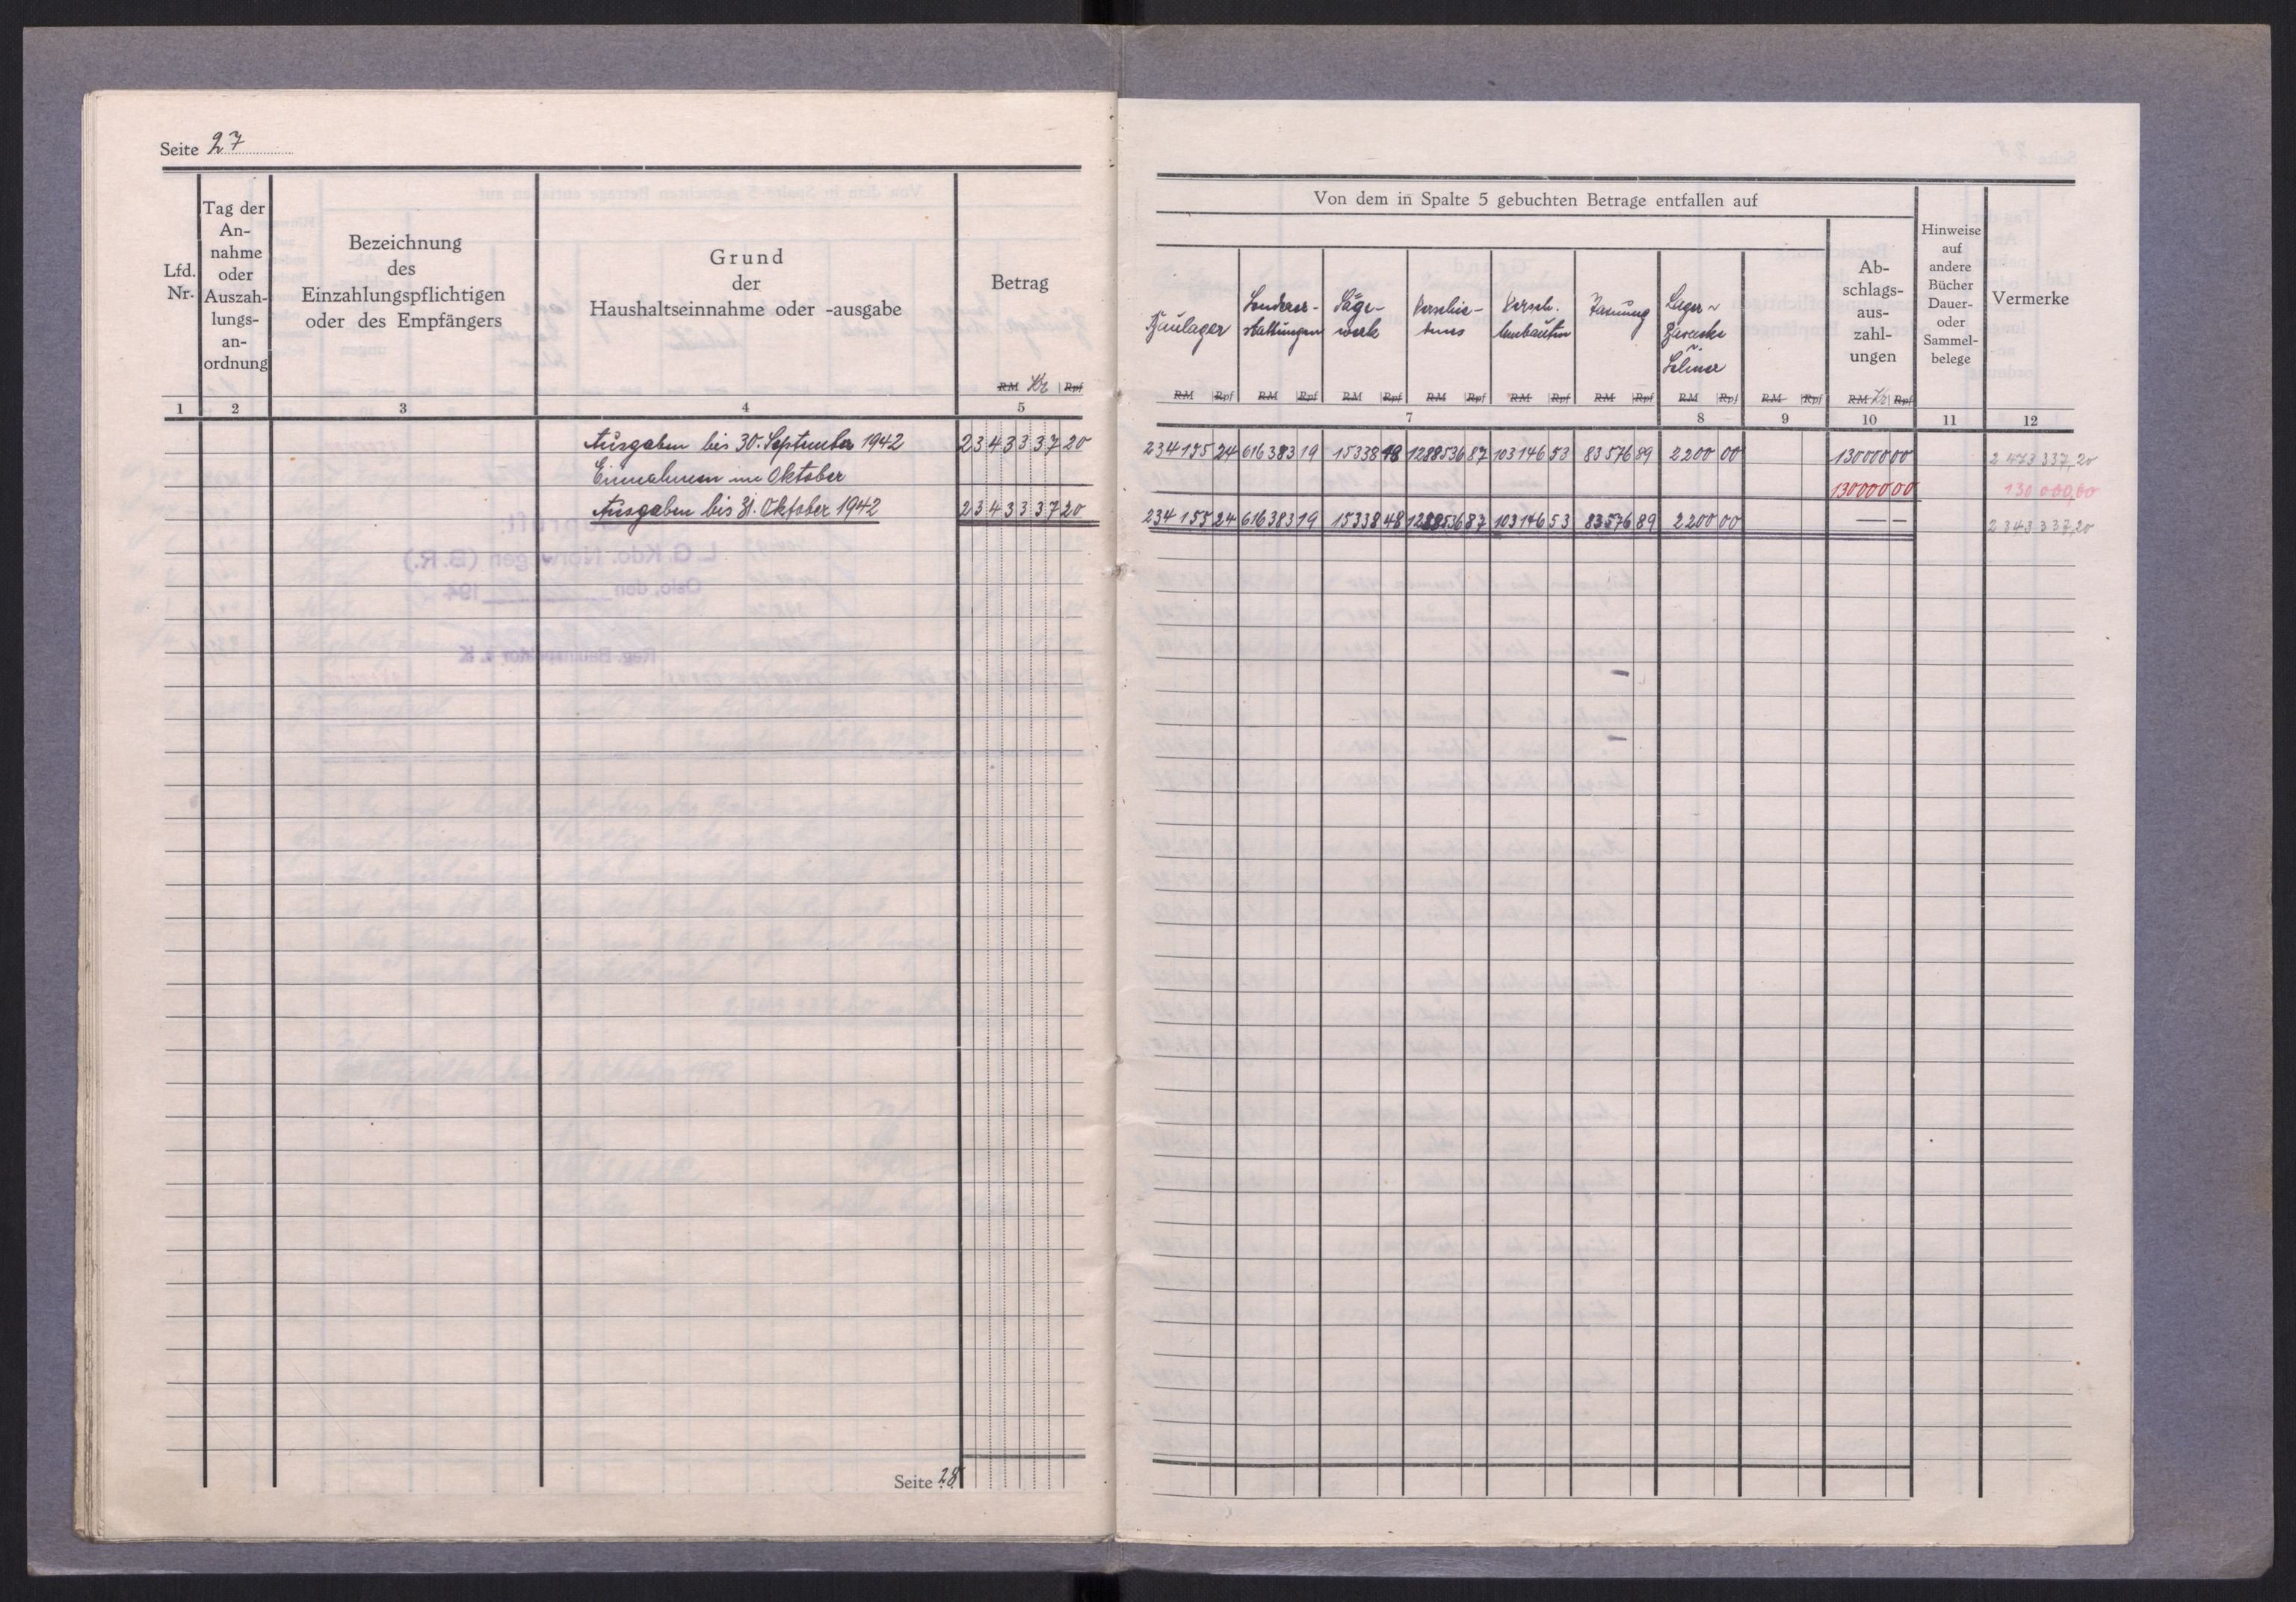 Seite 27
Lfd. Nr.
Tag der An-nahme oder Auszah-lungs-an-ordnung
Bezeichnung
des
Einzahlungspflichtigen
oder des Empfängers
Grund
der
Haushaltseinnahme oder -ausgabe
Betrag
RM Kr Rpf
1 2 3 4 5
Ausgaben bis 30. September 1942 2343337 20
Einnahmen im Oktober
Ausgaben bis 31. Oktober 1942 2343337 20
Geprüft:
L. G. Kdo. Norwegen (B. R.)
Oslo, den 194
Reg. Bauinspektor d. K.
Seite 28
Von dem in Spalte 5 gebuchten Betrage entfallen auf
Baulager
Säge-
werk
Versch.
Zäunung
Ab-
schlags-
aus-
zahl-
ungen
Hinweise
auf
andere
Bücher
Dauer-
oder
Sammel-
belege
Vermerke
RM Rpf RM Rpf RM Rpf RM Rpf RM Rpf RM Rpf RM Rpf RM Rpf RM Kr Rpf
7 8 9 10 11 12
234155 24 616383 19 15338 48 1288536 87 103146 53 83576 89 2200 00 130000 00 2 473 337,20
130000 00 130 000,00
234155 24 616383 19 15338 48 1288536 87 103146 53 83576 89 2200 00 — — 2 343 337,20